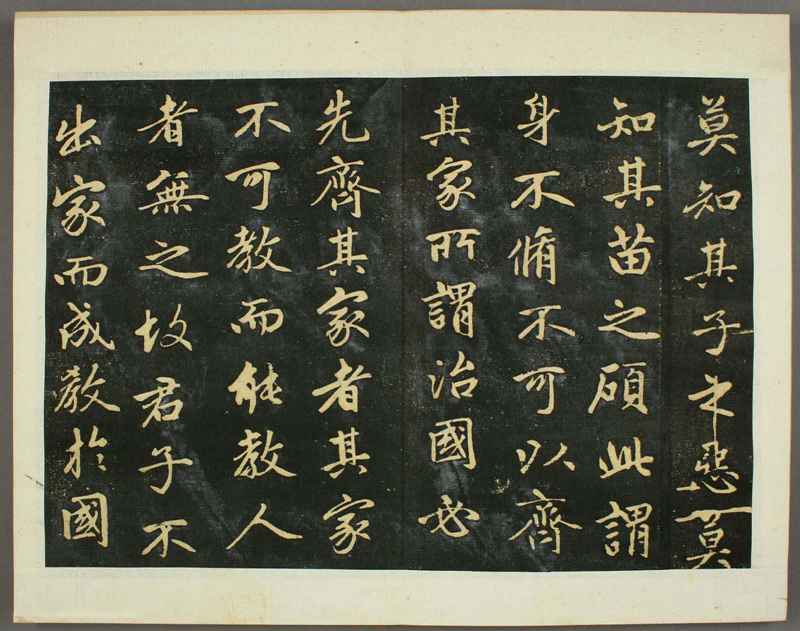 莫知其子之惡莫
知其苗之碩此謂
身不脩不可以齊
其家所謂治國必
先齊其家者其家
不可教而能教人
者無之故君子不
出家而成教於國